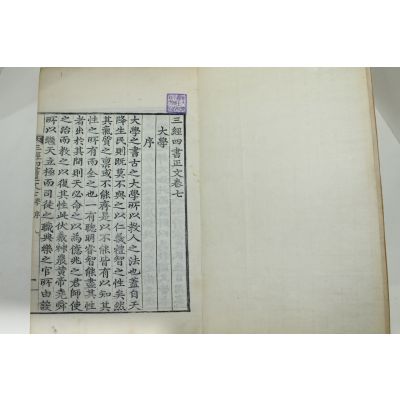 三經四書正文卷七
大學
序
大學之書古之大學所以敎人之法也蓋自天
降生民則旣莫不與之以仁義禮智之性矣然
其氣質之稟或不能齊是以不能皆有以知其
性之所有而全之也一有聰明睿智能盡其性
者出於其間則天必命之以爲億兆之君師使
之治而敎之以復其性此伏羲神農黃帝堯舜
所以繼天立極而司徒之職典樂之官所由設
三經四書正文